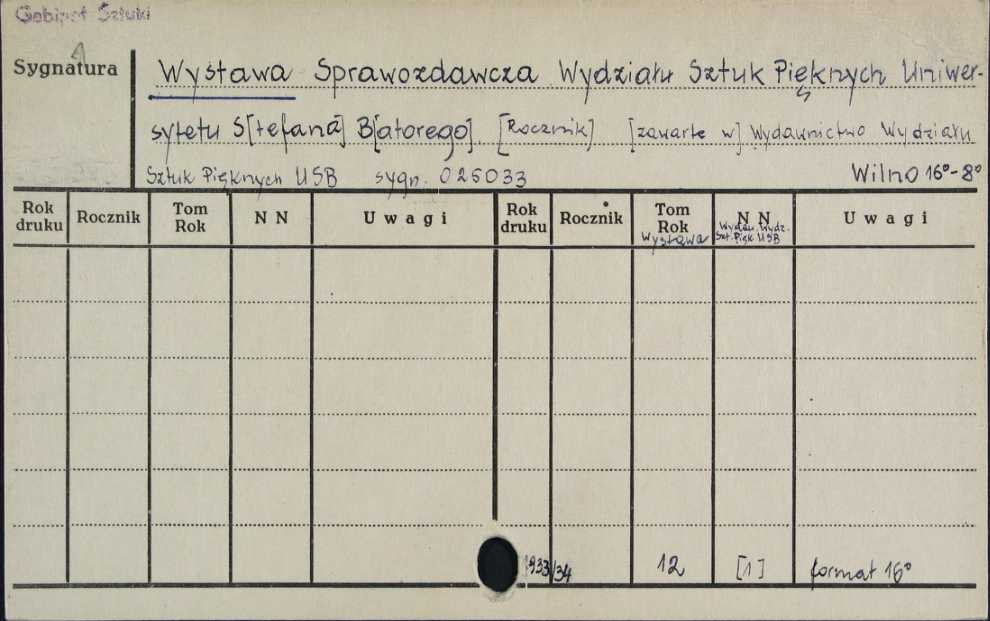 Gabinet Sztuki
Sygnatura
Wystawa Sprawozdawcza Wydziału Sztuk Pięknych Uniwer-
sytetu S[tefana] B[atorego]. [Rocznik] [zawarte w] Wydawnictwo Wydziału
Sztuk Pięknych USB sygn. 025033 Wilno 16°-8°
Rok druku Rocznik Tom Rok N N Uwagi Rok druku Rocznik Tom Rok Wystawa N N Wydaw. Wydz. Szt. Pięk USB Uwagi
1933/34 12 [1] format 16°